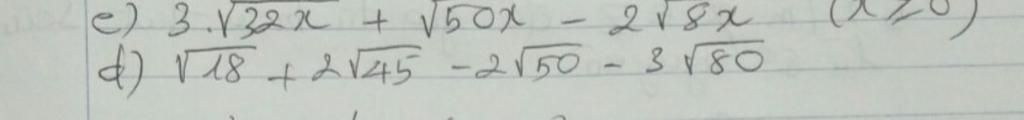 c) 3.√32x + √50x - 2√8x (x ≥ 0)
d) √18 + 2√45 - 2√50 - 3√80